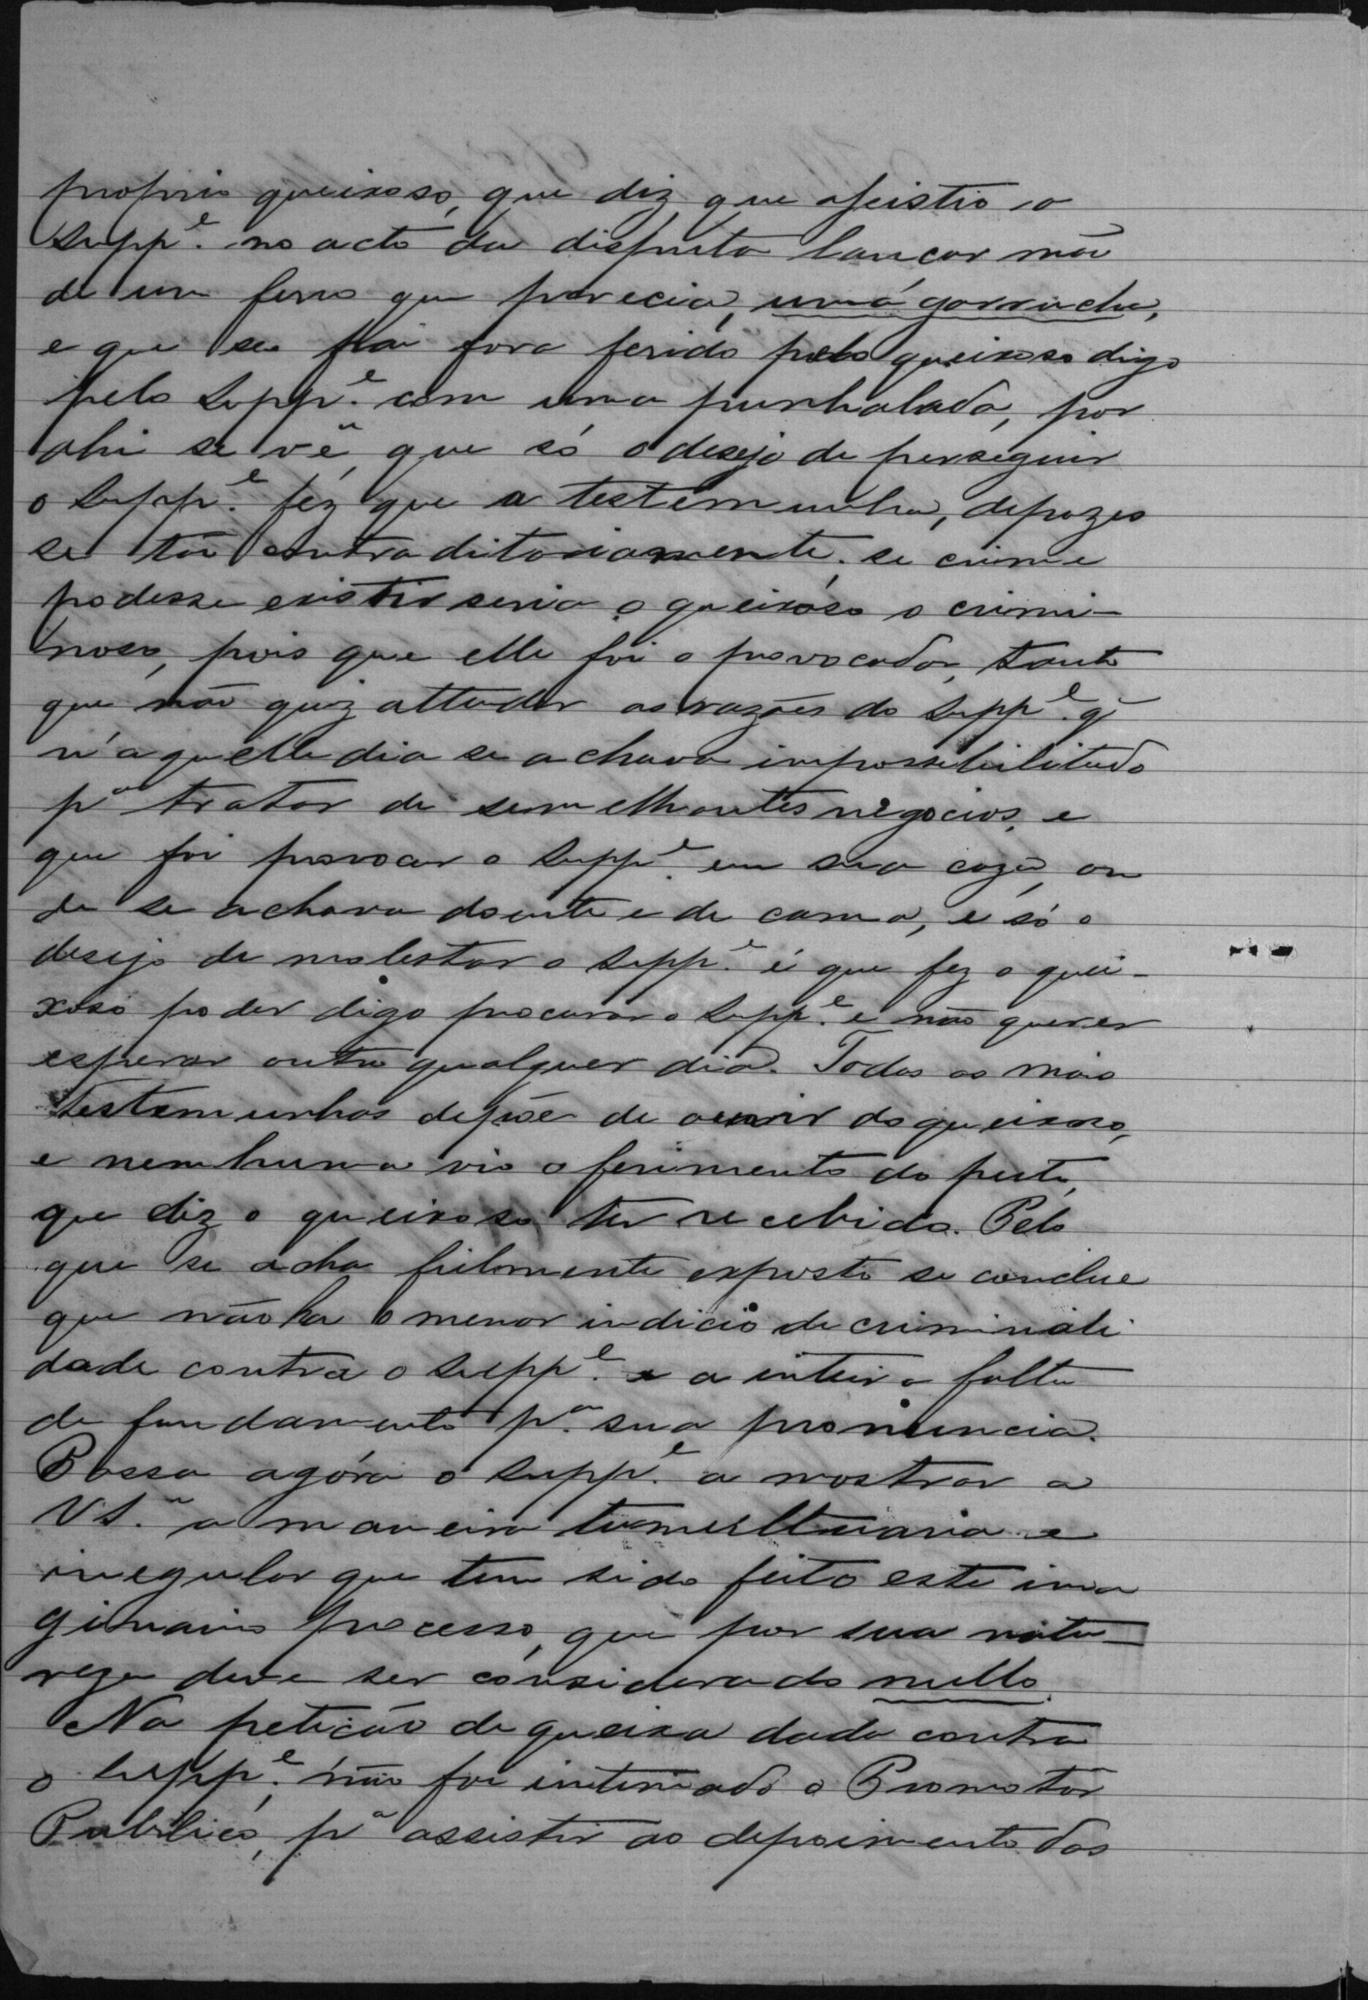 proprio queixoso, que diz que assistio o
Supp.e no acto da disputa lançar mão
de um ferro que parecia, uma garrucha,
e que seu Pai fora ferido pelo queixoso digo
pelo Supp.e com uma punhalada, por
ahi se vê, que só o desejo de perseguir
o Supp.e fez que a testemunha, depozes
se tão contraditoriamente. se crime
podesse existir seria o queixoso o crimi-
noso, pois que elle foi o provocador, tanto
que não quiz attender as razões do Supp.e q'
n'aquelle dia se achava impossibilitado
p.a tratar de semelhantes negocios, e
que foi provocar o Supp.e em sua caza, on
de se achava doente e de cama, e só o
desejo de molestar o Supp.e é que fez o quei-
xoso poder digo procurar o Supp.e e não querer
esperar outro qualquer dia. Todas as mais
testemunhas depõe de ouvir do queixoso,
e nemhuma vio o ferimento do peito,
que diz o queixoso ter recebido. Pelo
que se acha fielmente exposto se conclue
que não ha o menor indicio de criminali
dade contra o Supp.e e a inteira falta
de fundamento p.a sua pronuncia.
Passa agóra o Supp.e a mostrar a
V S.a a maneira tumultuaria e
irregular que tem sido feito este ima
ginario processo, que por sua natu-
reza deve ser considerado nullo.
Na petição de queixa dada contra
o Supp.e, não foi intimado o Promotor
Publico, p.a assistir ao depoimento das